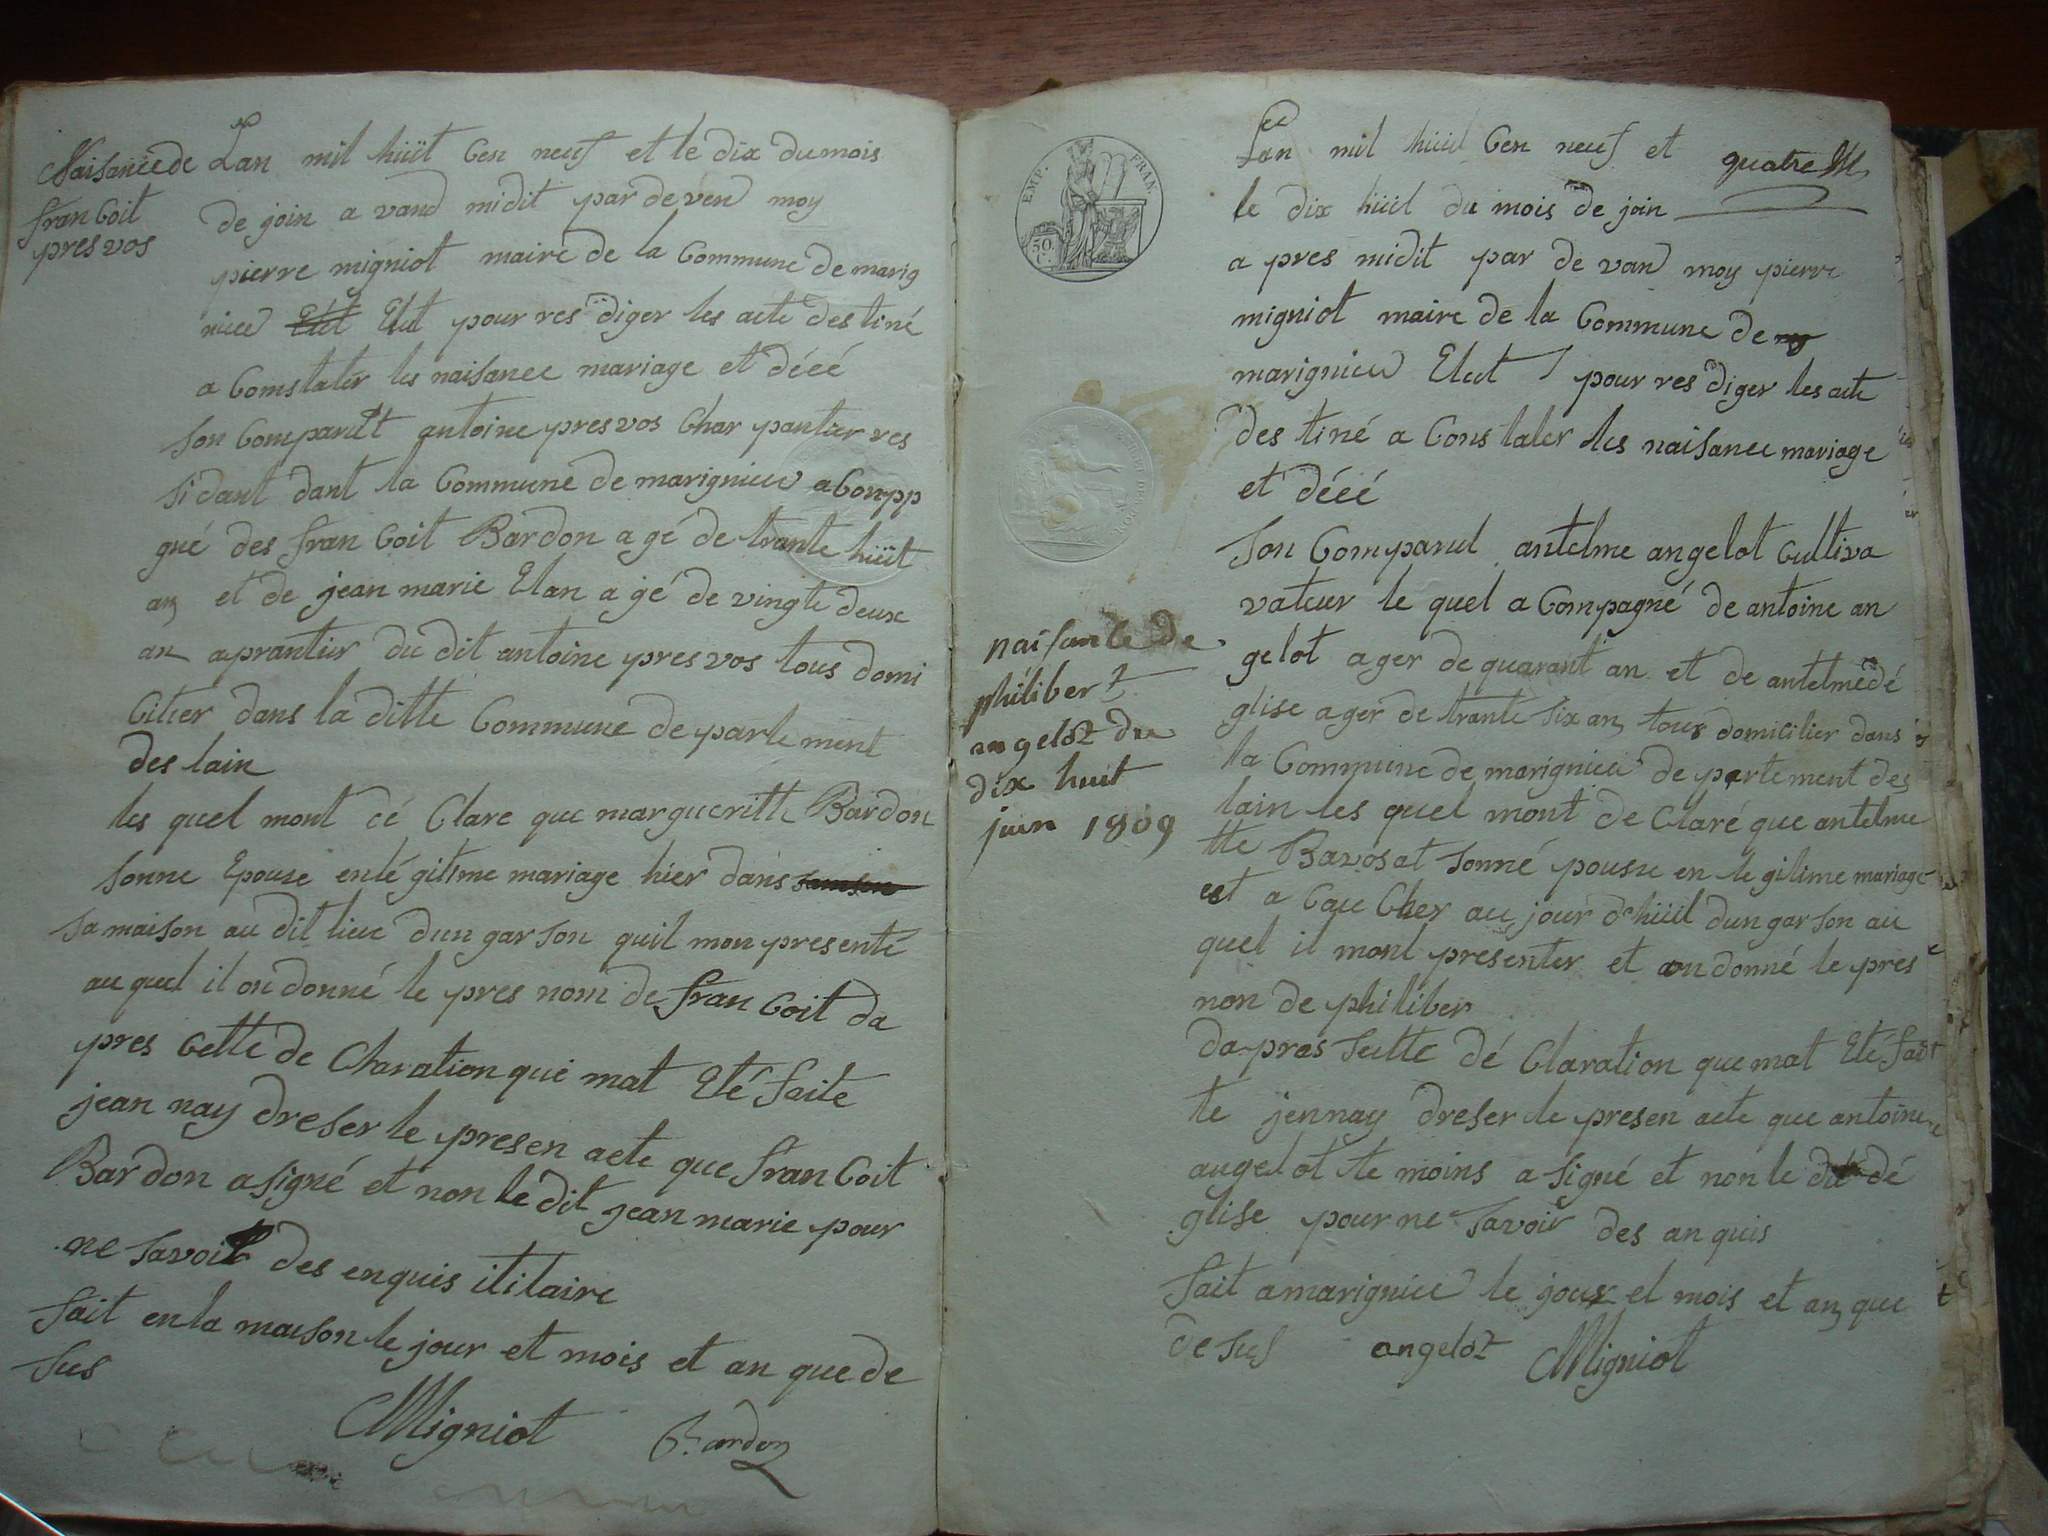 Naisance de
franCoit
presvos
Lan mil hüit Cen neuf et le dix du mois
de join a vand midit par de ven moy
pierre migniot maire de la Commune de marig
nieu Elut Elut pour res diger les acte des tiné
a Comstater les naisance mariage et déeé
son Comparut antoine presvos Char pantier res
sidant dant la Commune de marignieu a Conpp
gné des franCoit Bardon agé de trante hüit
an et de jean marie Elan agé de vingte deux
an aprantier du dit antoine presvos tous domi
Cilier dans la ditte Commune departement
des lain
les quel mont dé Clare que margueritte Bardon
sonne Epouse en lé gitime mariage hier dans
sa maison au dit lieu dun garson quil mon presenté
au quel il on donné le pres nom de franCoit da
pres Cette de Charation qui mat Eté faite
jean nay dreser le presen acte que franCoit
Bardon a signé et non le dit jean marie pour
ne savoir des enquis ititaire
fait en la maison le jour et mois et an que de
sus
Migniot Bardon
EMP. FRAN.
50. C.
quatre
Lan mil hüil Cen neuf et
le dix hüil du mois de join
a pres midit par de vand moy pierre
migniot maire de la Commune de
marignieu Elut pour res diger les acte
des tiné a Constater les naisance mariage
et déeé
son Comparut antelme angelot Cultiva
vateur le quel a Compagné de antoine an
gelot ager de quarant an et de antelme dé
glise ager de trante six an tous domicilier dans
la Commune de marignieu departement des
lain les quel mont de Claré que antelme
tte Bavosat sonné pouse en le gitime mariage
est a Cau Cher au jour dhüil dun garson au
quel il mont presenter et on donné le pres
non de philiber
dapres sette dé Claration que mat Eté fait
te jennay dreser le presen acte que antoine
angelot te moins a signé et non le dit dé
glise pour ne savoir des an quis
fait a marignieu le jour et mois et an que
de sus angelot Migniot
naisance de
philibert
angelot du
dix huit
juin 1809